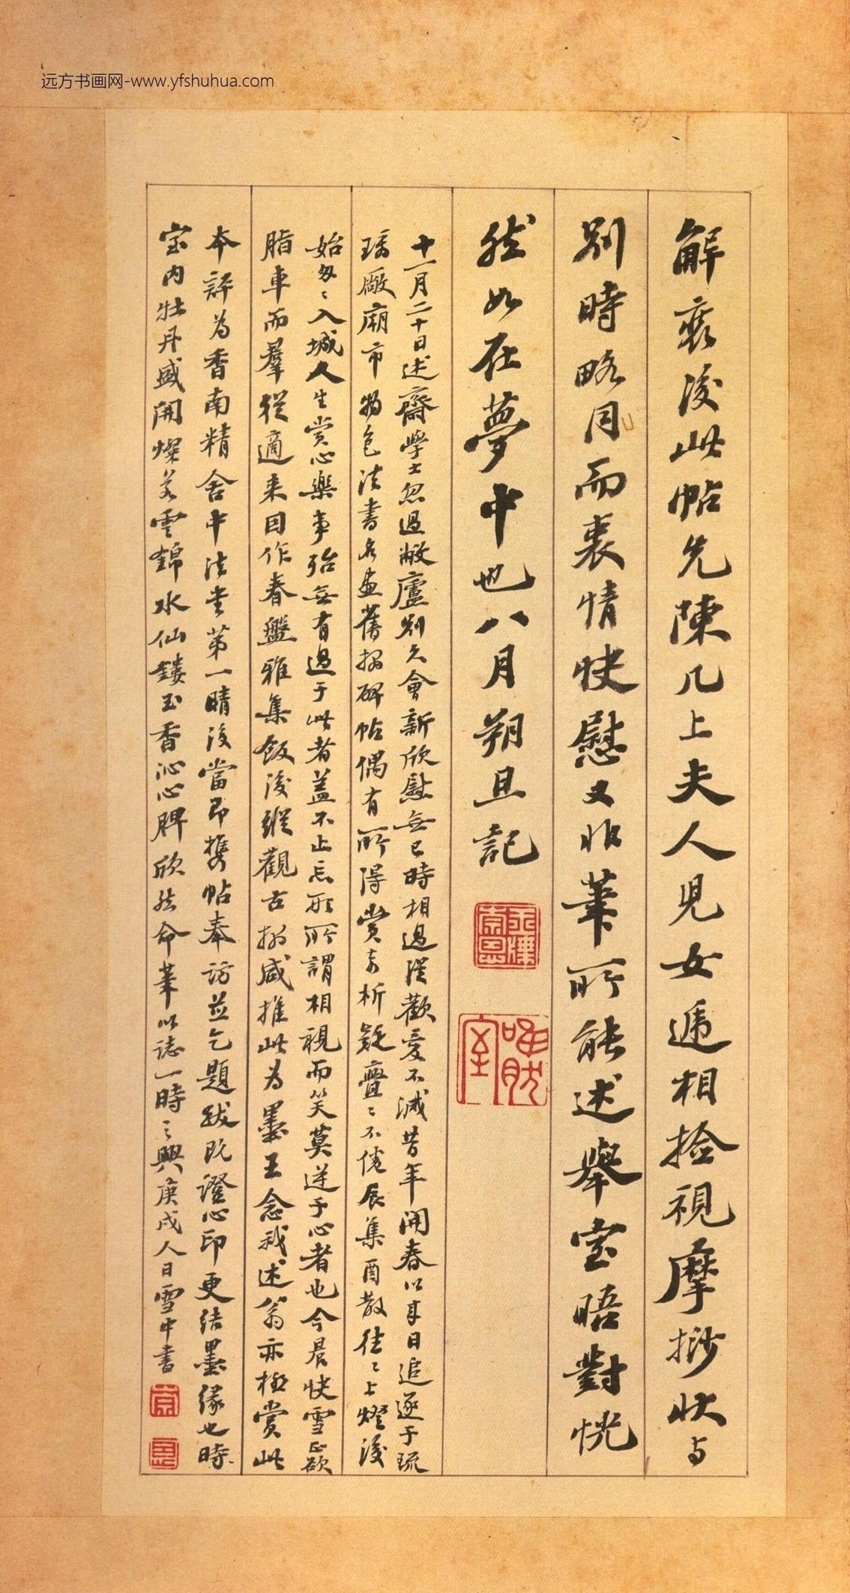 远方书画网-www.yfshuhua.com
解裝後此帖先陳几上夫人兒女遞相撿視摩挱狀与
別時略同而衷情快慰又非筆所能述舉室晤對恍
然如在夢中也八月朔旦記
十一月二十日述齋學士忽過敝廬別久會新欣慰無已時相過從歡愛不減昔年開春以來日追逐于琉
璃厰廟市物色法書名畫舊搨碑帖偶有所得賞奇析疑亹〻不倦辰集酉散往〻上燈後
始匆〻入城人生賞心樂事殆無有過于此者蓋不止忘形所謂相視而笑莫逆于心者也今晨快雪正欲
脂車而羣從適来因作春盤雅集飯後縱觀古搨咸推此為墨王念我述翁亦極賞此
本評為香南精舍中法書第一晴後當即携帖奉訪並乞題跋既證心印更结墨缘也時
室内牡丹盛開燦若雲錦水仙鏤玉香沁心脾欣然命筆以誌一時之興庚戌人日雪中書